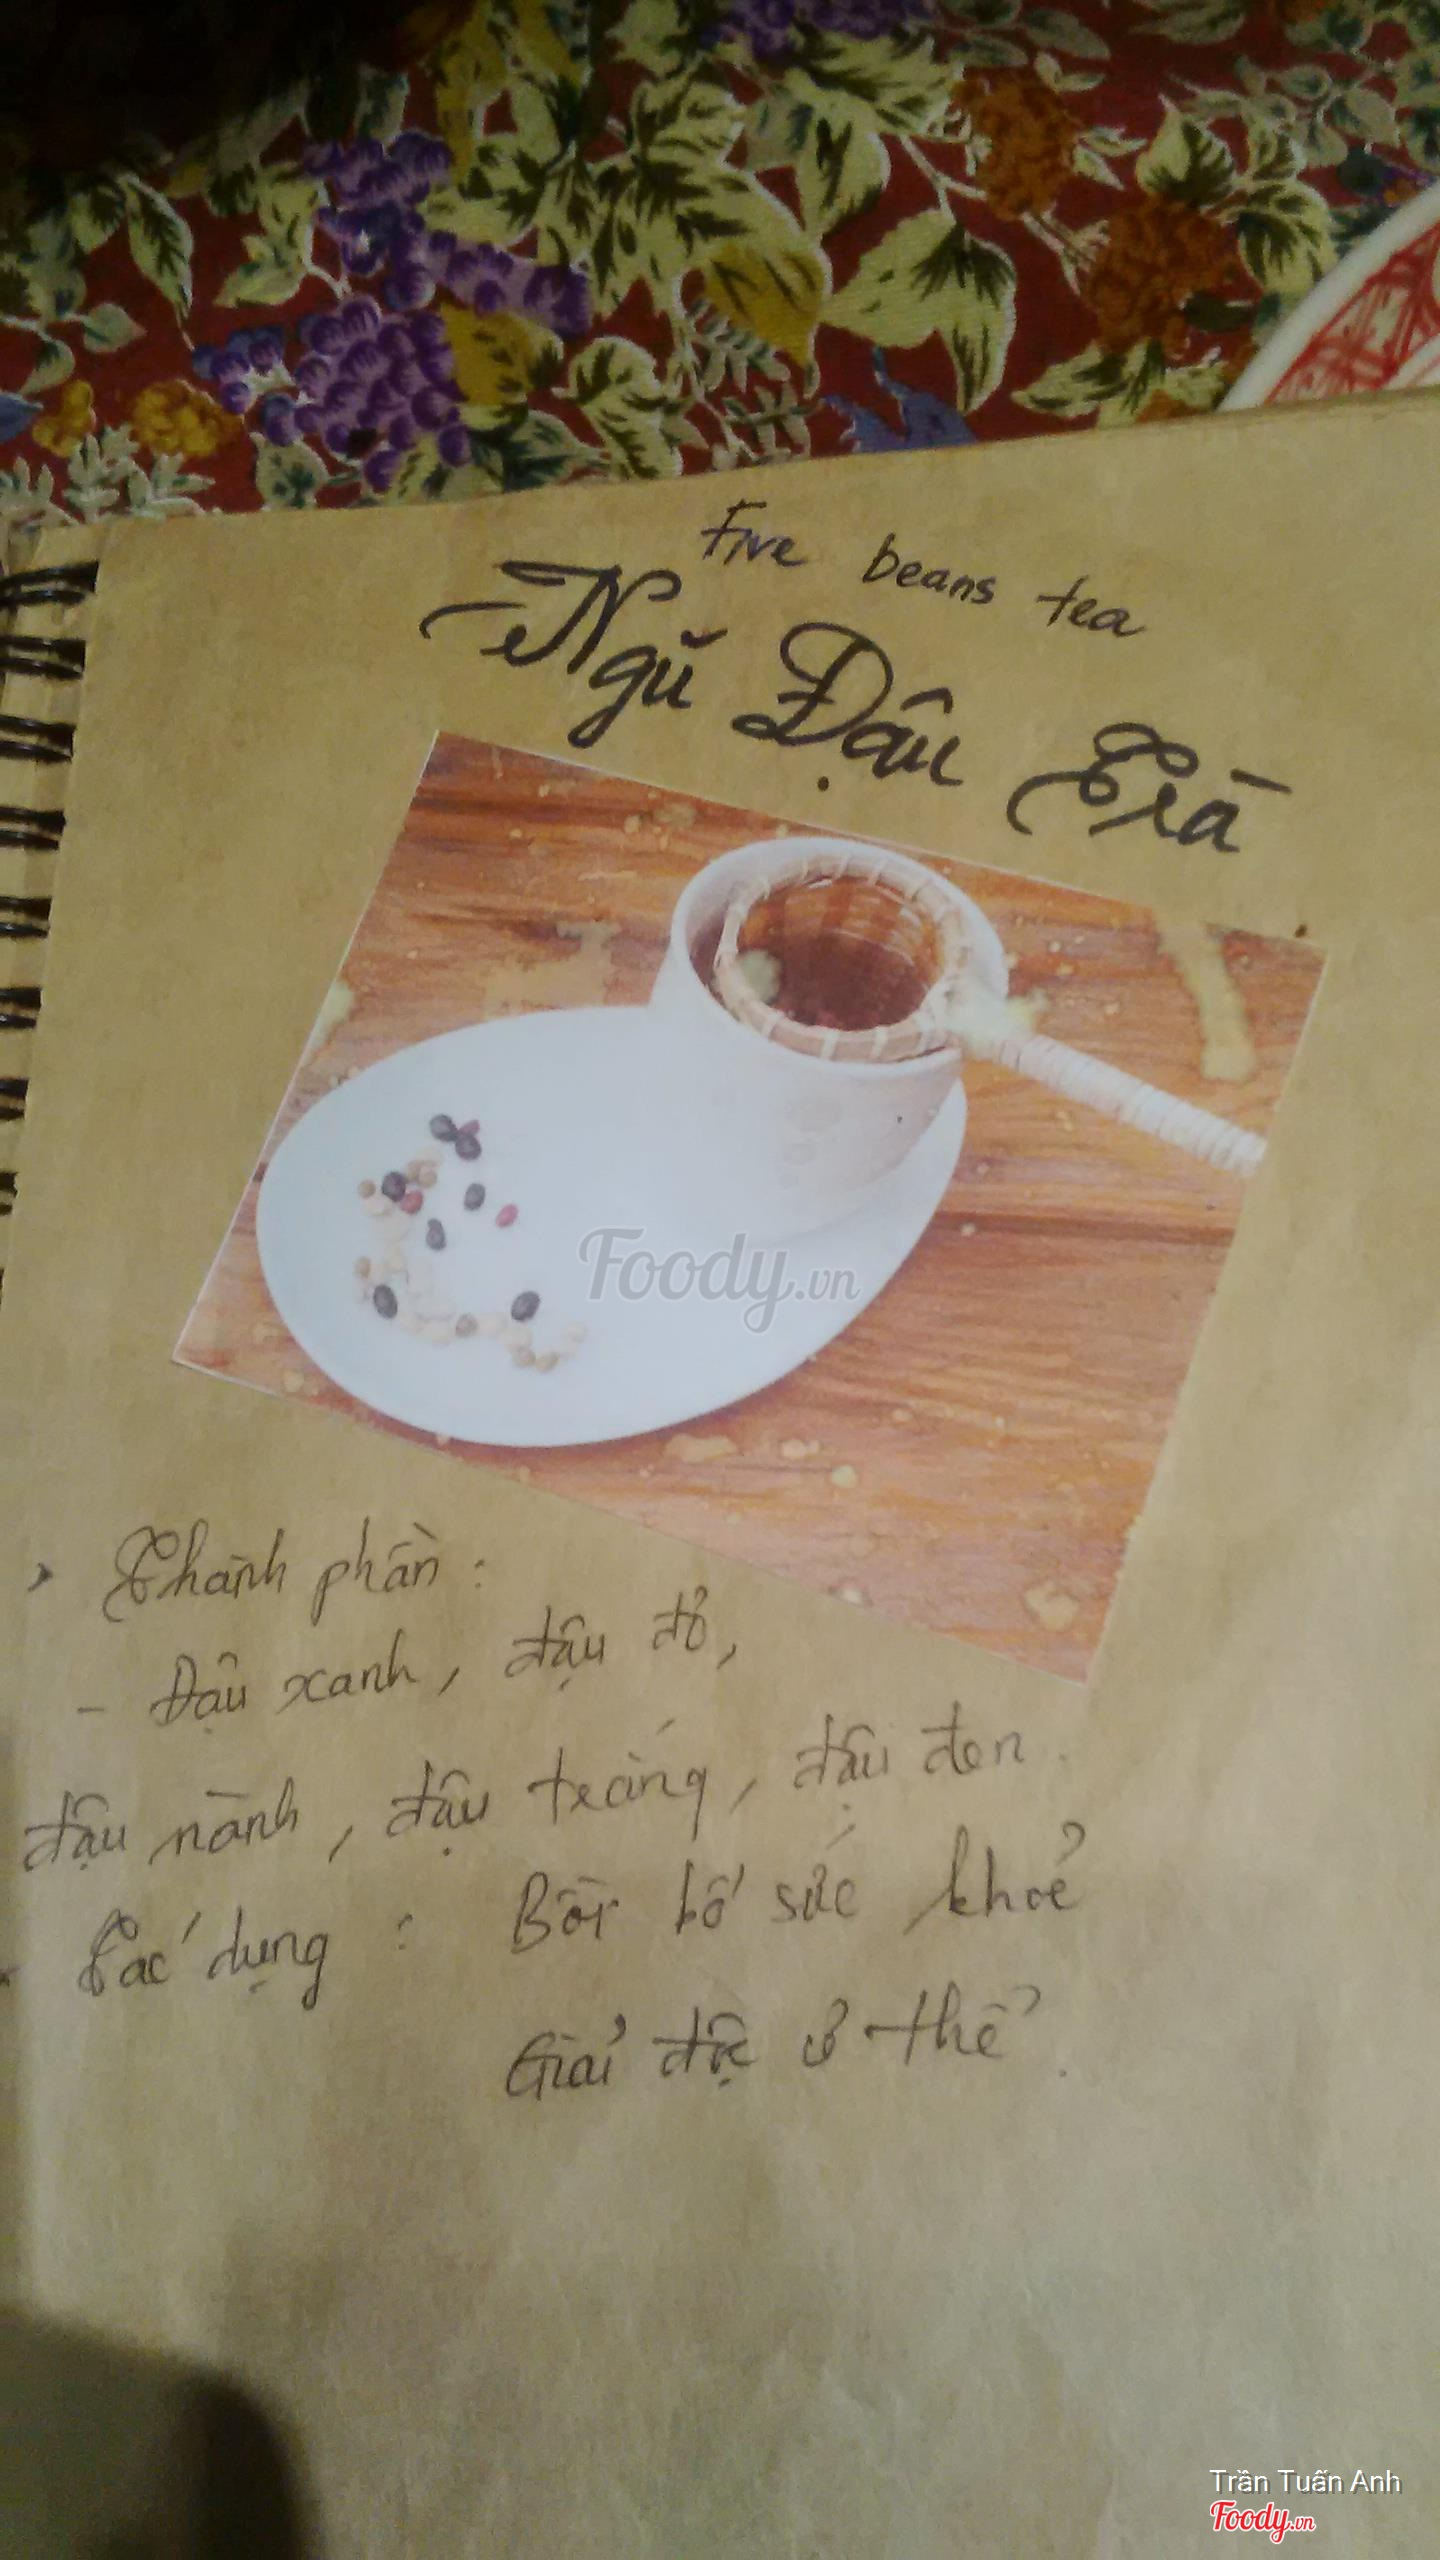 Five beans tea
Ngũ Đậu Trà
Foody.vn
Thành phần:
- Đậu xanh, đậu đỏ,
đậu nành, đậu trắng, đậu đen.
Tác dụng: Bồi bổ sức khoẻ
Giải độc cơ thể.
Trần Tuấn Anh
Foody.vn